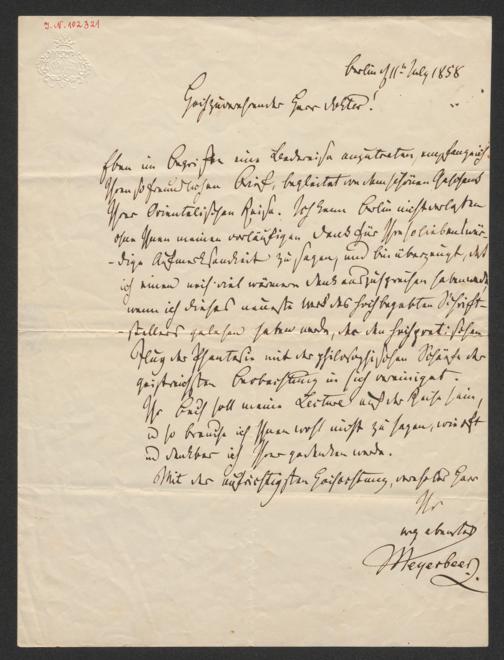 J.N. 102321
Berlin d 11ten July 1858
Hochzuverehrender Herr Doktor!
Eben im Begriffen eine Baderreise anzutreten, empfange ich
Ihren so freundlichen Brief, begleitet von dem schönen Geschenk
Ihrer Orientalischen Reise. Ich kann Berlin nicht verlassen
ohne Ihnen meinen vorläufigen Dank für Ihre so liebenswür-
-dige Aufmerksamkeit zu sagen, und bin überzeugt, daß
ich einen noch viel wärmern Dank auszusprechen haben werde
wenn ich dieses neueste Werk des hochbegabten Schrift-
-stellers gelesen haben werde, der den hochpoetischen
Flug der Phantasie mit der philosophischen Schärfe der
geistreichsten Beobachtung in sich vereiniget.
Ihr Buch soll meine Lecture auf der Reise sein,
u so brauche ich Ihnen wohl nicht zu sagen, wie oft
und dankbar ich Ihrer gedenken werde.
Mit der aufrichtigsten Hochachtung, verehrter Herr
Ihr
ergebenster
Meyerbeer.